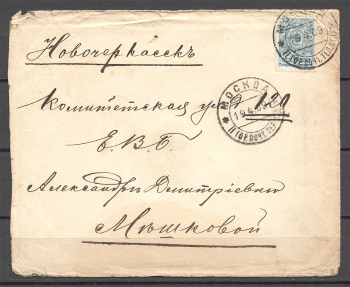 Новочеркасскъ
Комитетская ул 120
ЕВБ
Александрѣ Дмитріевнѣ
Мѣшковой
МОСКВА
19 4 09
МОСКВА
19 4